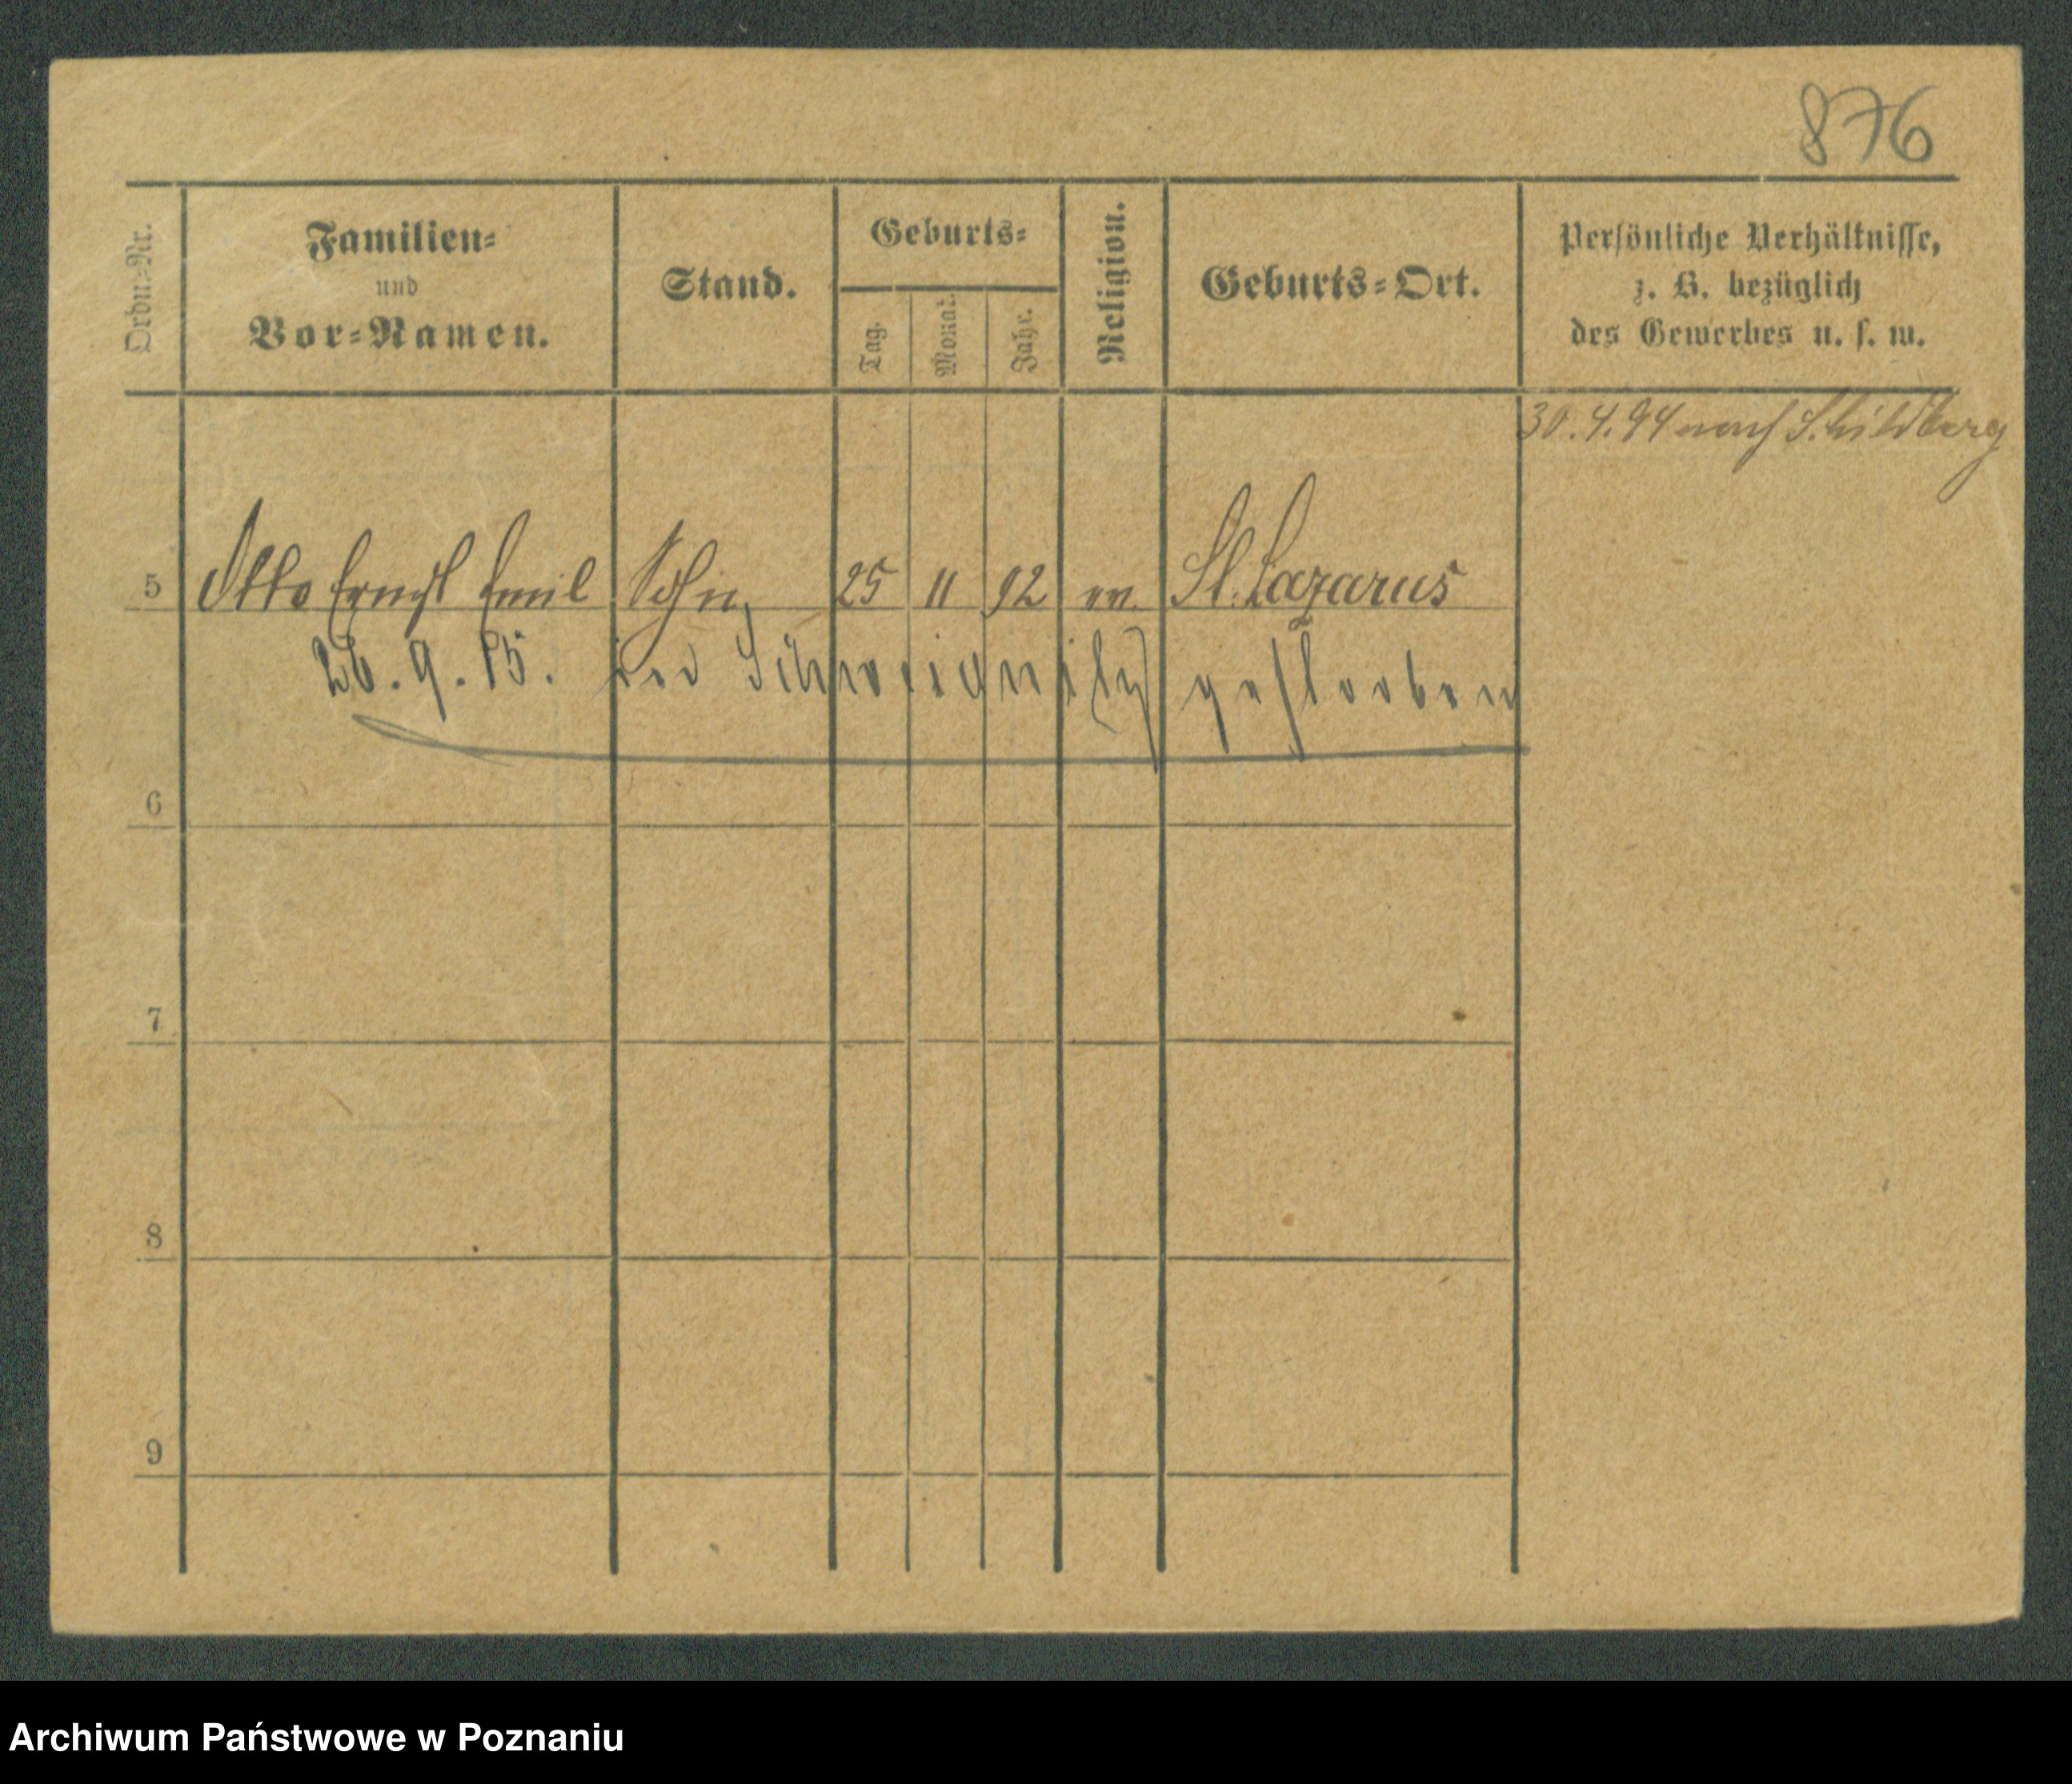 876
Ordn.-Nr.
Familien-
und
Vor-Namen.
Stand.
Geburts-
Tag.
Monat.
Jahr.
Religion.
Geburts-Ort.
Persönliche Verhältnisse,
z. B. bezüglich
des Gewerbes u. s. w.
30.4.94 nach Schildberg
5 Otto Ernst Emil Sohn 25 11 92 ev. St. Lazarus
26.9.15. in Schweidnitz gestorben
6
7
8
9
Archiwum Państwowe w Poznaniu